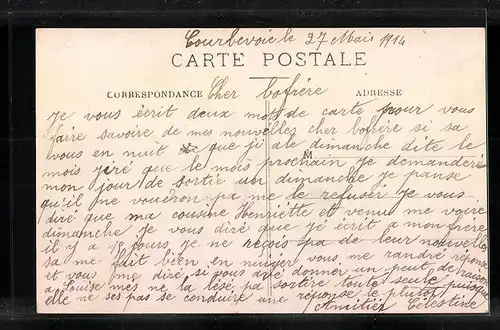 Courbevoie le 27 Mais 1914
CARTE POSTALE
CORRESPONDANCE Cher Cofrère ADRESSE
Je vous écrit deux mot de carte pour vous
faire savoire de mes nouvelles cher bofrère si sa
vous en nuit que ji ale dimanche dite le
M
mois jiré que le mois prochain je demanderé
mon jour de sortie un dimanche je panse
qu'il me vouéron pa me le refuser Je vous
diré que ma cousine Henriette et venue me voire
dimanche Je vous diré que jé écrit a mon frère
il y a 18 jours je ne reçois pa de leur nouvelles
sa me fait bien en nuyer vous me randré réponse
et vous me diré si vous avé donner un peut de raison
a Louise mes ne la lésé pa sortire toute seule puisque
elle ne ses pas se conduire une réponse le plutôt
Amitier Célestine